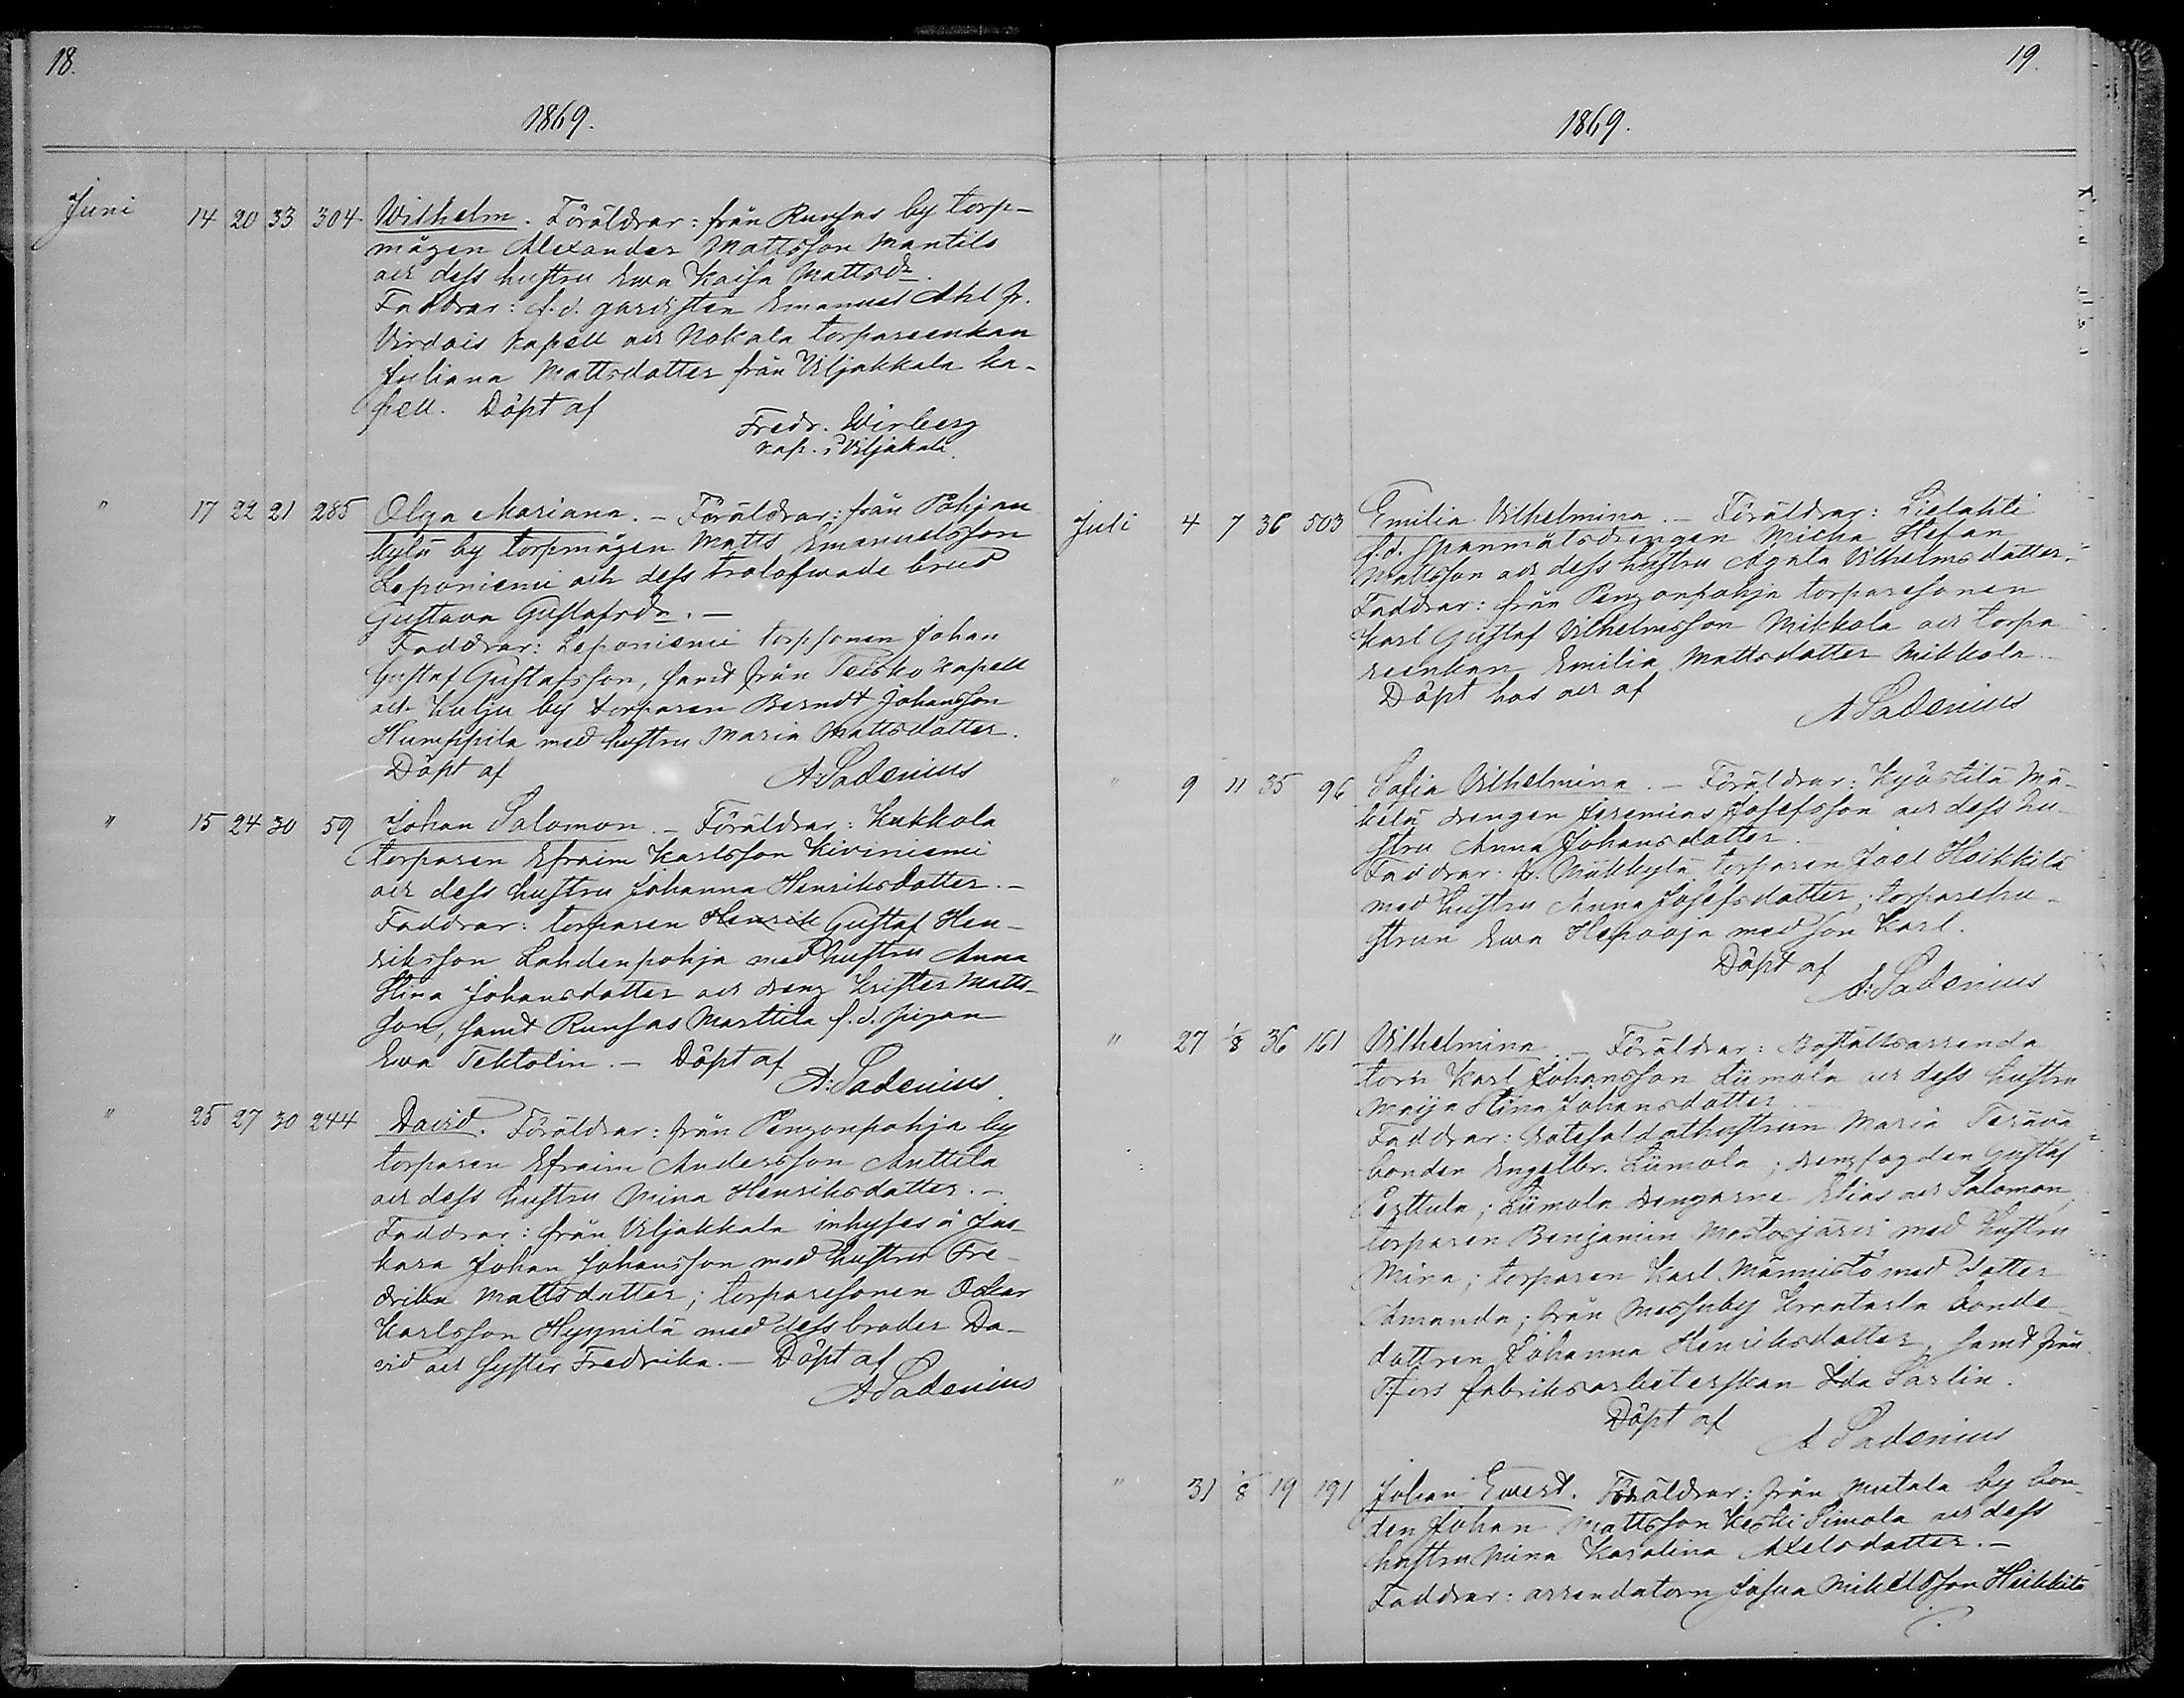 18.
1869.
Juni 14 20 33 304. Wilhelm. Föräldrar: från Runsas by torp-
mågen Alexander Mattsson Mantils
och dess hustru Ewa Kaisa Mattsdr.
Faddrar: f.d. gardisten Emanuel Ahl fr.
Virdois kapell och Nokala torpareenkan
Juliana Mattsdotter från Viljakkala ka-
pell. Döpt af
Fredr. Wirberg
kap. i Viljakala.
" 17 22 21 285 Olga Mariana. – Föräldrar: från Pohjan
kylä by torpmågen Matts Emanuelsson
Leponiemi och dess trolofwade brud
Gustava Gustafsdr. –
Faddrar: Leponiemi torpsonen Johan
Gustaf Gustafsson, samt från Teisko kapell
och Kulju by torparen Berndt Johansson
Humppila med hustru Maria Mattsdotter.
Döpt af
A. Sadenius
" 15 24 30 59 Johan Salomon. – Föräldrar: Kukkola
torparen Efraim Karlsson Kiviniemi
och dess hustru Johanna Henriksdotter. –
Faddrar: torparen Henrik Gustaf Hen-
riksson Lahdenpohja med hustru Anna
Stina Johansdotter och dreng Krister Matts-
son, samt Runsas Marttila f.d. pigan
Ewa Tektolin. – Döpt af
A: Sadenius.
" 25 27 30 244 David. Föräldrar: från Pengonpohja by
torparen Efraim Andersson Anttila
och dess hustru Mina Henriksdotter. –
Faddrar: från Viljakkala inhyses å Jus
kara Johan Johansson med hustru Fre-
drika Mattsdotter; torparesonen Oskar
Karlsson Hyynilä med dess broder Da-
vid och syster Fredrika. – Döpt af
A Sadenius
19.
1869.
Juli 4 7 36 503 Emilia Vilhelmina. – Föräldrar: Lielahti
f.d. spanmålsdrengen Micha Stefan
Mattsson och dess hustru Agata Vilhelmsdotter.
Faddrar: från Pengonpohja torparesonen
Karl Gustaf Vilhelmsson Mikkola och torpa
reenkan Emilia Mattsdotter Mikkola.
Döpt hos och af
A Sadenius
" 9 11 35 96 Sofia Vilhelmina. – Föräldrar: Kyöstilä Mä-
kelä drengen Jeremias Josefsson och dess hu-
stru Anna Johansdotter.
Faddrar: fr. Mäkkylä torparen Joel Heikkilä
med hustru Anna Josefsdotter; torparehu-
strun Ewa Hepooja med son Karl.
Döpt af
A: Sadenius
" 27 1/8 36 161 Vilhelmina. – Föräldrar: Boställsarrenda
torn Karl Johansson Liimola och dess hustru
Maija Stina Johansdotter.
Faddrar: Rotesoldathustrun Maria Terävä
bonden Engelbr. Liimola; drengfogden Gustaf
Perttula; Liimola drengarne Elias och Salomon,
torparen Benjamin Mastosjärvi med hustru
Mina; torparen Karl Männistö med dotter
Amanda; från Messuby Krantarla bonde-
dottren Johanna Henriksdotter, samt från
T:fors fabriksarbeterskan Ida Sarlin.
Döpt af
A Sadenius
" 31 1/8 19 191 Johan Ewert. Föräldrar: från Mutala by bon-
den Johan Mattsson Keski Simola och dess
hustru Mina Karolina Axelsdotter. –
Faddrar: arrendatorn Josua Mikelsson Heikkilä